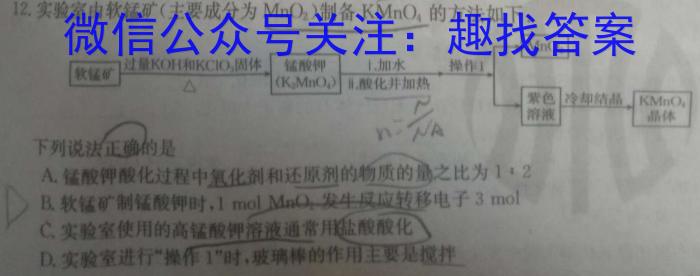 12.实验室由软锰矿(主要成分为 MnO₂)制备 KMnO₄ 的方法如下
微信公众号关注：趣找答案
软锰矿 过量KOH和KClO₃固体 △ 锰酸钾(K₂MnO₄) ⅰ.加水 ⅱ.酸化并加热 操作1
紫色溶液 冷却结晶 KMnO₄晶体
n=N/NA
下列说法正确的是
A. 锰酸钾酸化过程中氧化剂和还原剂的物质的量之比为 1∶2
B. 软锰矿制锰酸钾时,1 mol MnO₂ 发生反应转移电子 3 mol
C. 实验室使用的高锰酸钾溶液通常用盐酸酸化
D. 实验室进行“操作 1”时,玻璃棒的作用主要是搅拌